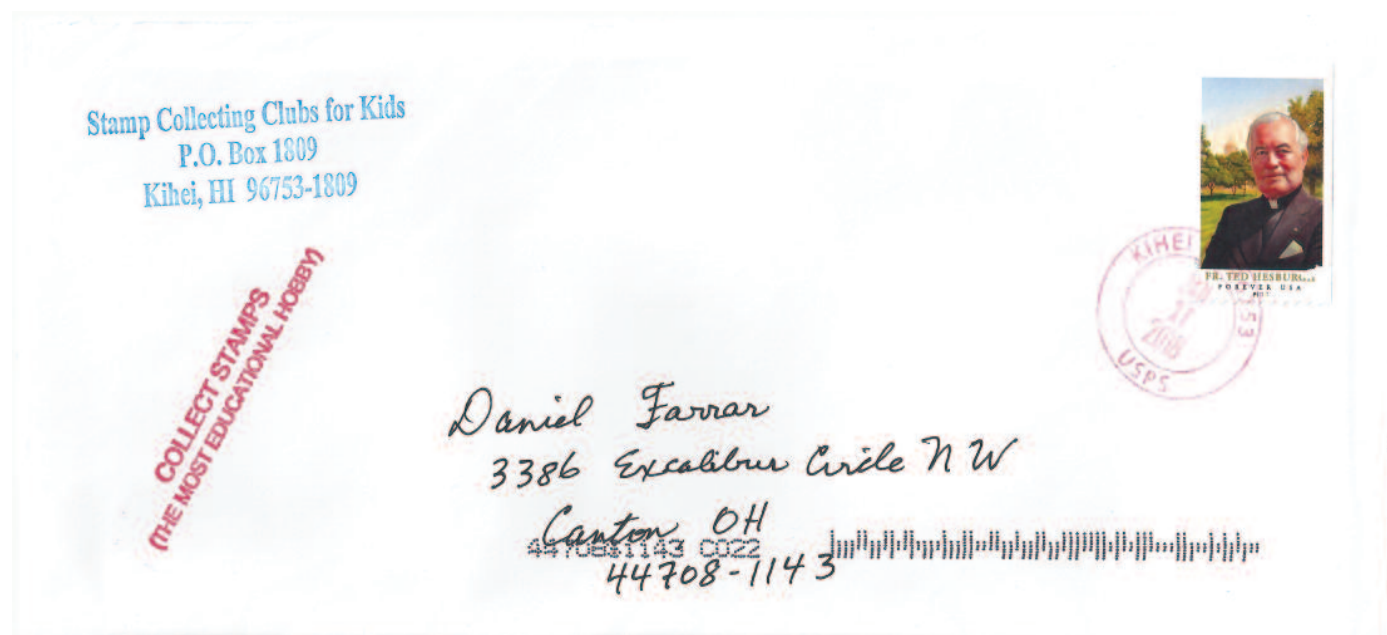 Stamp Collecting Clubs for Kids
P.O. Box 1809
Kihei, HI 96753-1809
COLLECT STAMPS
(THE MOST EDUCATIONAL HOBBY)
FR. TED HESBUR
FOREVER USA
KIHEI
753
USPS
Daniel Farrar
3386 Excalibur Circle NW
Canton OH
44708-1143
44708$1143 C022